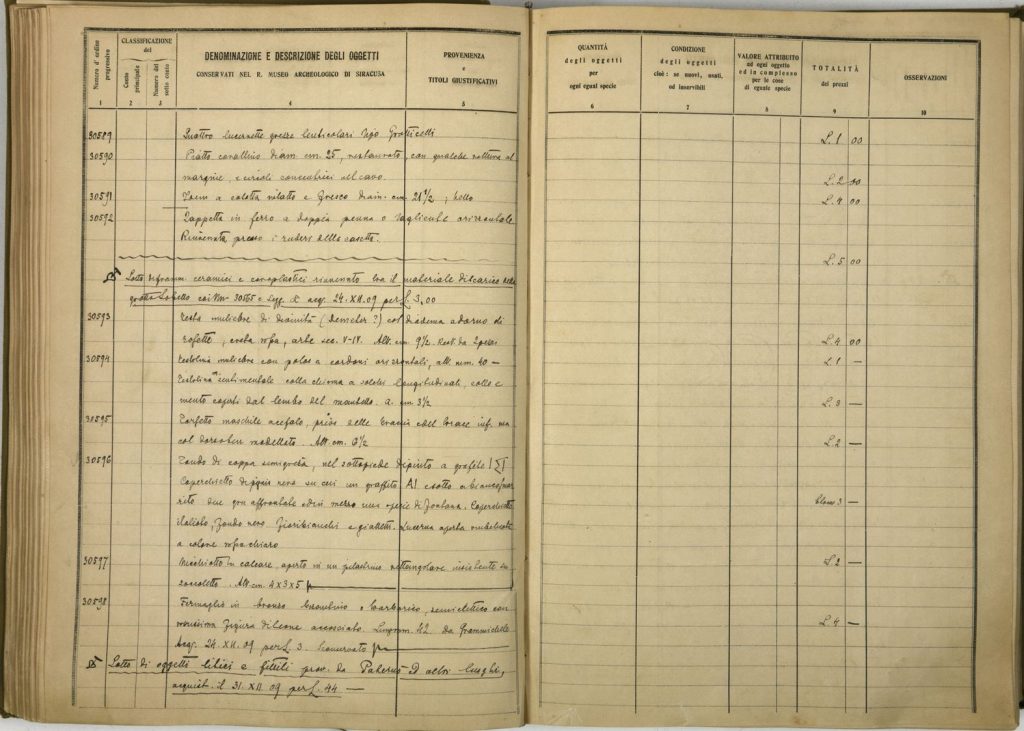 Numero d'ordine progressivo
CLASSIFICAZIONE
del
Conto principale
Numero del sotto conto
DENOMINAZIONE E DESCRIZIONE DEGLI OGGETTI
CONSERVATI NEL R. MUSEO ARCHEOLOGICO DI SIRACUSA
PROVENIENZA
e
TITOLI GIUSTIFICATIVI
QUANTITÀ
degli oggetti
per
ogni egual specie
CONDIZIONE
degli oggetti
cioè: se nuovi, usati,
od inservibili
VALORE ATTRIBUITO
ad ogni oggetto
ed in complesso
per le cose
di eguale specie
TOTALITÀ
dei prezzi
OSSERVAZIONI
1 2 3 4 5 6 7 8 9 10
30589 Quattro lucernette grezze lenticolari tipo Grotticelli L. 1 00
30590 Piatto corallino diam. cm. 25, restaurato, con qualche rottura al
margine, e circoli concentrici nel cavo. L. 2 00
30591 Idem a calotta diam. cm. 21 1/2; bello L. 4 00
30592 Zappetta in ferro a doppia penna o tagliente orizzontale
Rinvenuta presso i ruderi della casetta. L. 5 00
Lotto di framm. ceramici e coroplastici rinvenuto tra il materiale di scarico della
grotta coi Nm. 30565 e segg. acq. 24. XII. 09 per L. 3,00
30593 Testa muliebre di divinità (Demeter?) col diadema adorno di
rosette, creta rosea, arte sec. V-IV. Alt. cm. 9 1/2. Rest. da 2 pezzi L. 4 00
30594 Testolina muliebre con polos a cordoni orizzontali, alt. mm. 40 — L. 1 —
Testolina sentimentale colla chioma a solchi longitudinali, collo e
mento coperti dal lembo del mantello. a. cm 3 1/2 L. 3 —
30595 Torsetto maschile acefalo, privo delle braccia e del torace inf. ma
col dorso ben modellato. Alt. cm. L. 2 —
30596 Tondo di coppa semigreca, nel sottopiede dipinto a grafite
Coperchietto nero su cui un graffito AI
due gru affrontate ed in mezzo una specie di fontana. Coperchietto
italioto, fondo nero fiori bianchi e gialletti. Lucerna aperta
a colore rosso chiaro
30597 in calcare, aperto in un pilastrino rettangolare insistente su
zoccoletto. Alt. cm 4x3x5 L. 2 —
30598 Fermaglio in bronzo bizantino o barbarico, semiellittico con
figura di leone accosciato da Grammichele L. 4 —
Acq. 24. XII. 09 per L. 3.
Lotto di oggetti litici e fittili prov. da Paternò ed altri luoghi,
acquist. il 31. XII 09 per L. 44 —